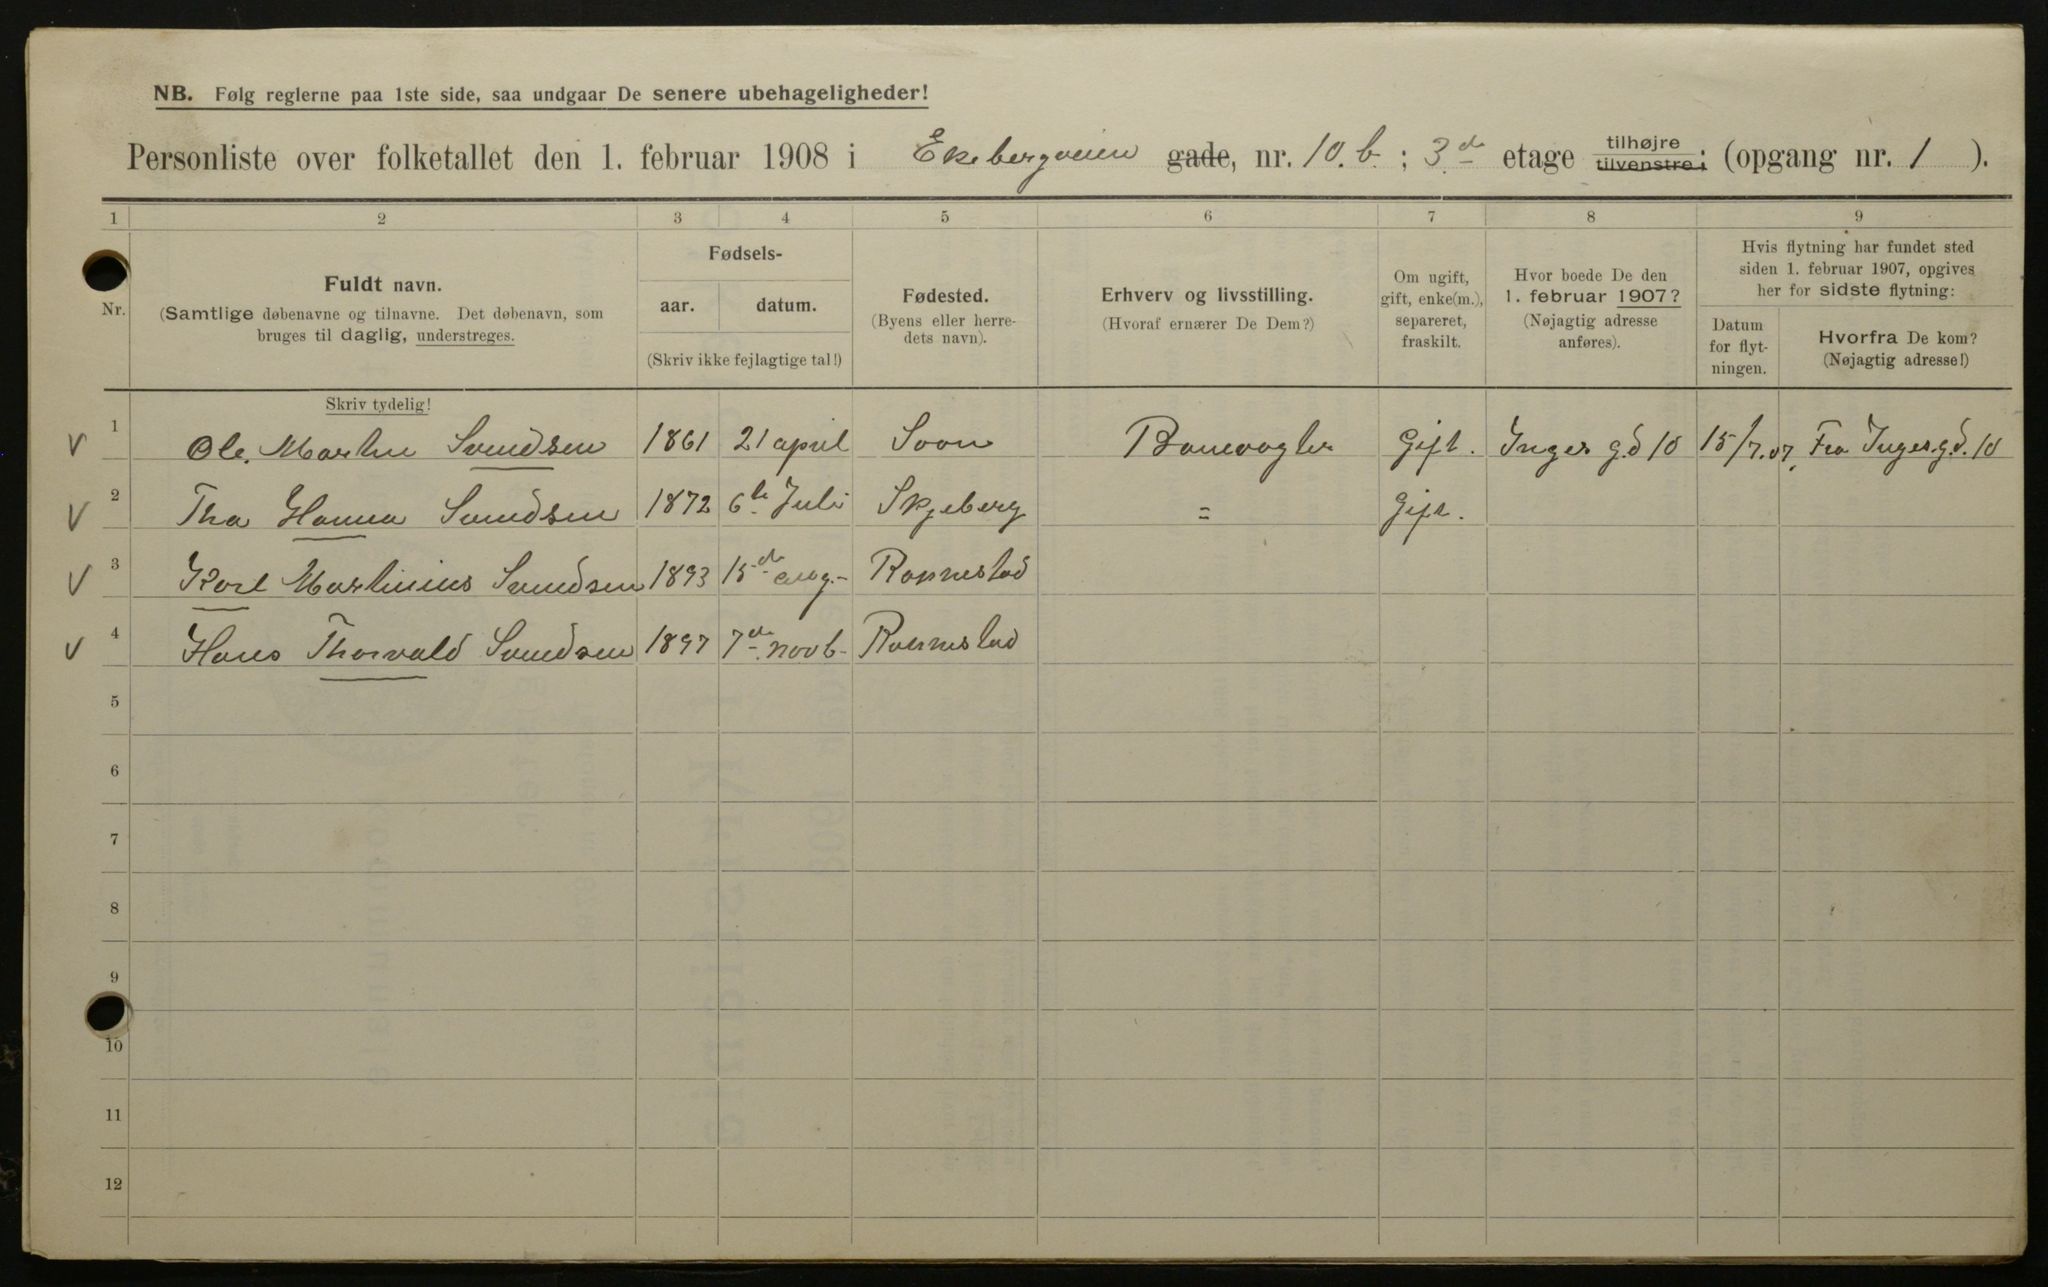 NB. Følg reglerne paa 1ste side, saa undgaar De senere ubehageligheder!
Personliste over folketallet den 1. februar 1908 i Ekebergveien gade, nr. 10.b. ; 3de etage tilhøjre tilvenstre; (opgang nr. 1 ).
1 2 3 4 5 6 7 8 9
Nr.
Fuldt navn.
(Samtlige døbenavne og tilnavne. Det døbenavn, som
bruges til daglig, understreges.
Skriv tydelig!
Fødsels-
aar. datum.
(Skriv ikke fejlagtige tal!)
Fødested.
(Byens eller herre-
dets navn).
Erhverv og livsstilling.
(Hvoraf ernærer De Dem?)
Om ugift,
gift, enke(m.),
separeret,
fraskilt.
Hvor boede De den
1. februar 1907?
(Nøjagtig adresse
anføres).
Hvis flytning har fundet sted
siden 1. februar 1907, opgives
her for sidste flytning:
Datum
for flyt-
ningen.
Hvorfra De kom?
(Nøjagtig adresse!)
V 1 Ole. Martin Svendsen 1861 21 april Soon Banevogter Gift. Inger g.d 10 15/7.07, Fra Inger.g.d. 10
V 2 Tha Hanna Svendsen 1872 6te Juli Skjeberg = Gift.
V 3 Karl Martinius Svendsen 1893 15de aug.- Rommestad
V 4 Hans Thorvald Svendsen 1897 7de novb- Rommestad
5
6
7
8
9
10
11
12